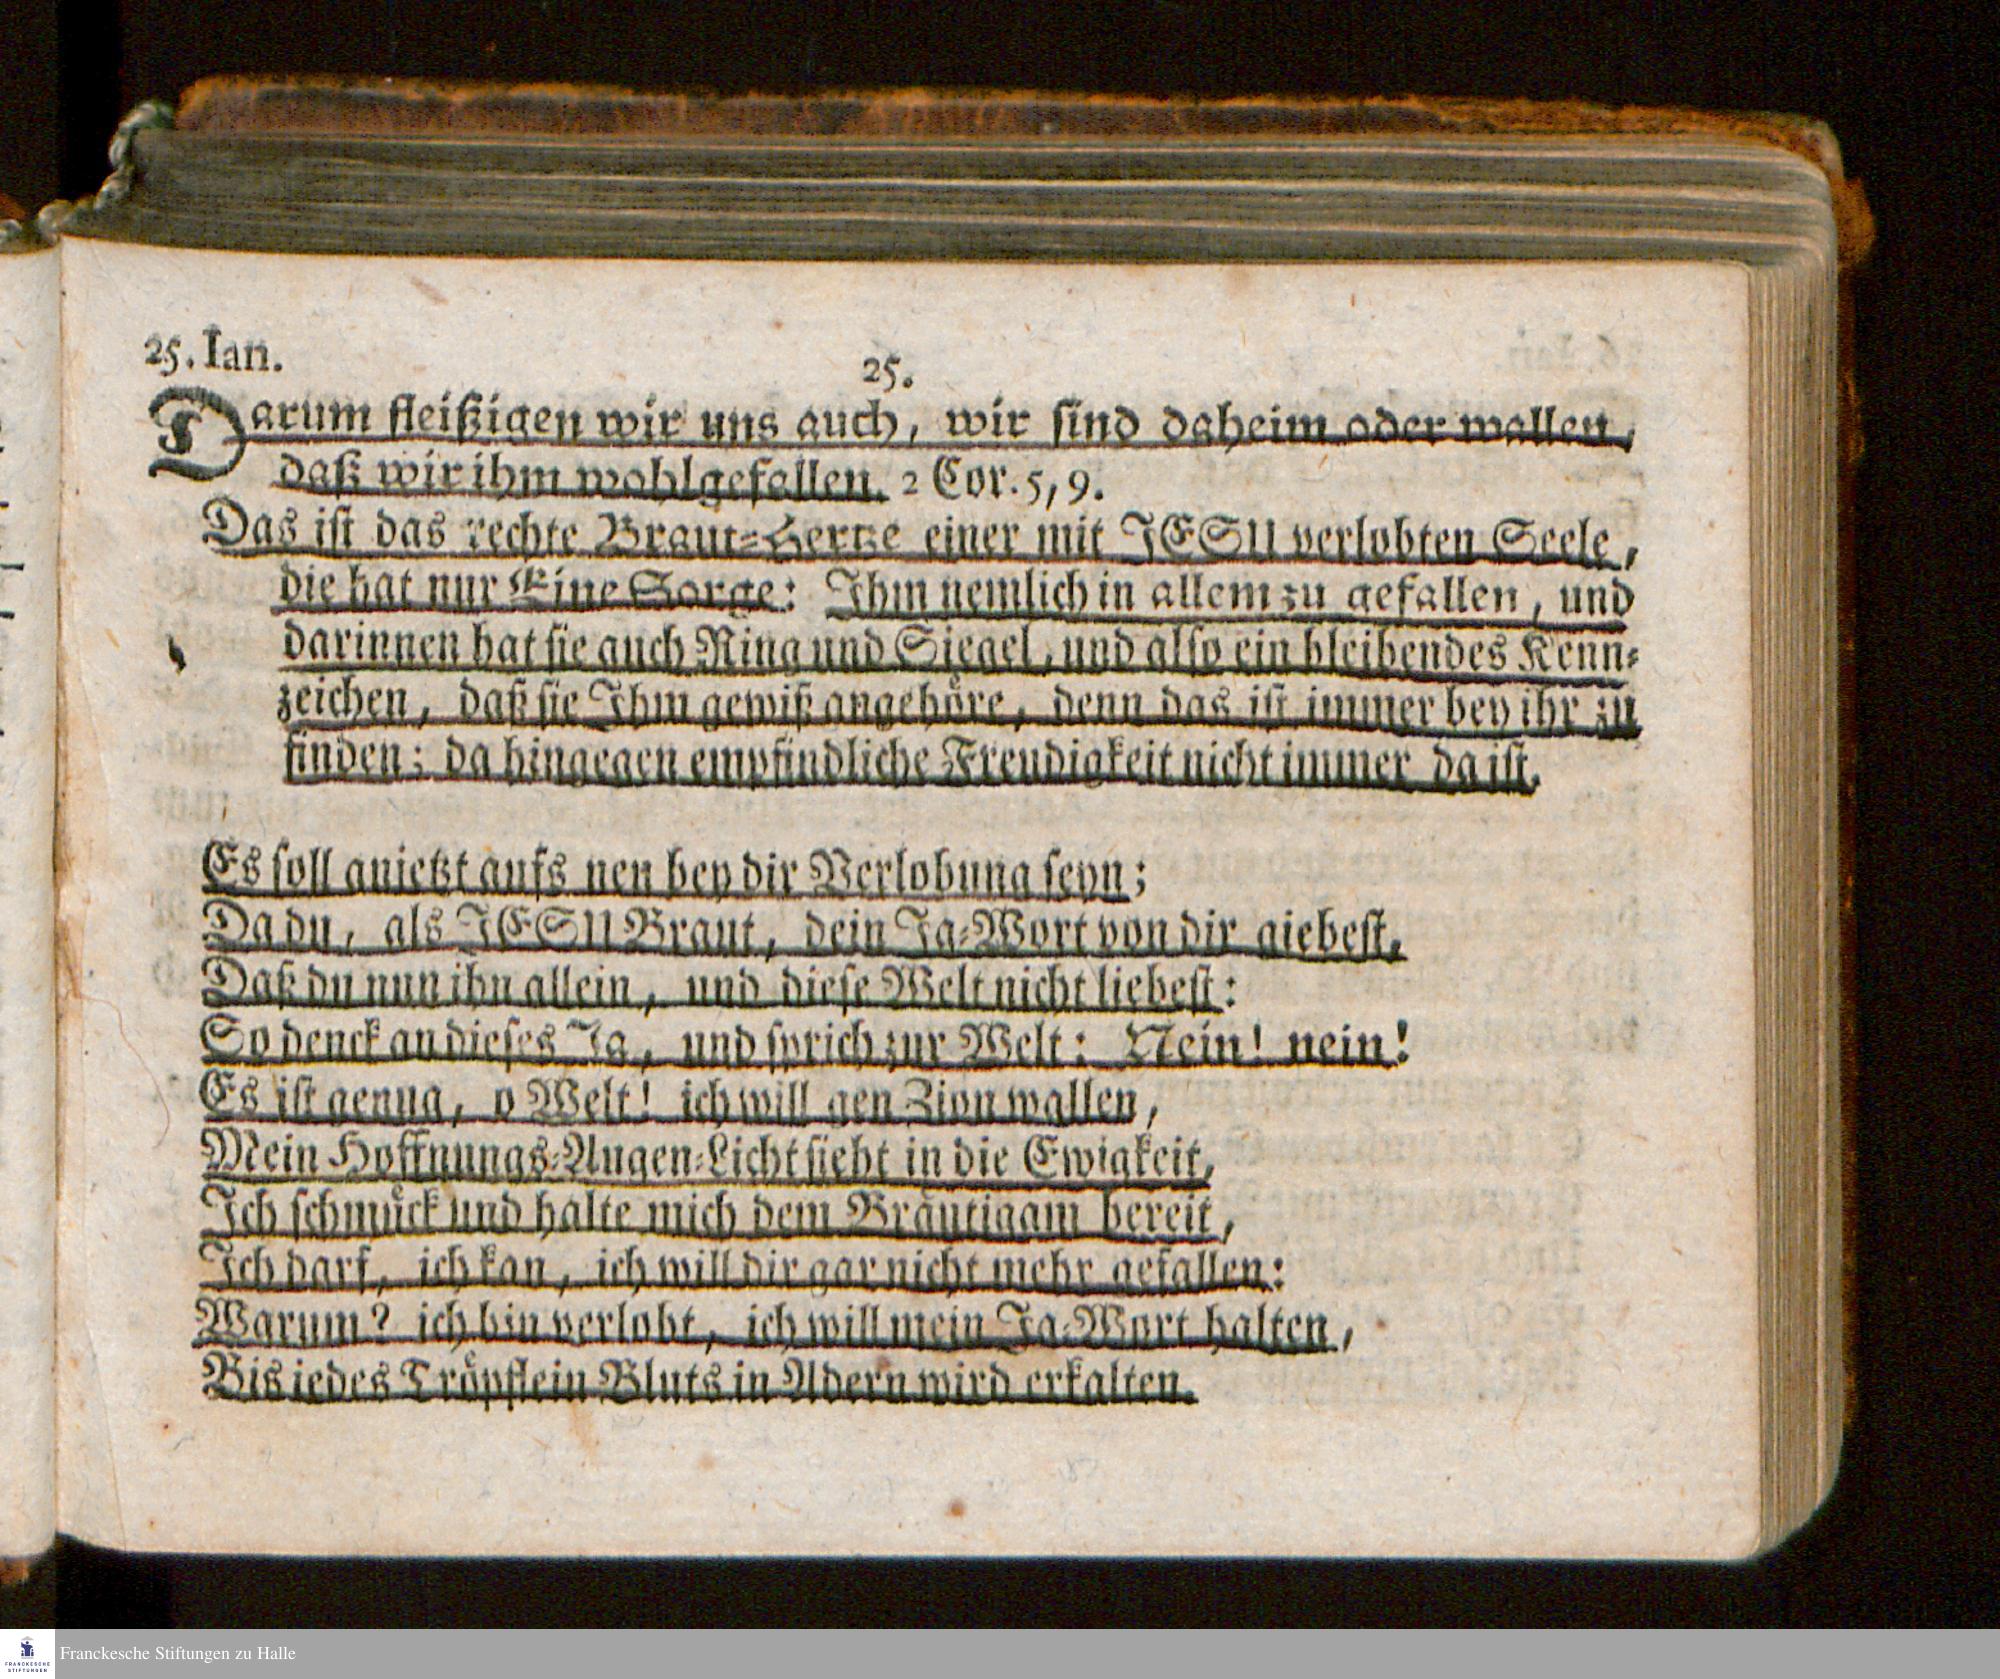 25. Ian.
25.
Darum fleißigen wir uns auch, wir sind daheim oder wallen,
daß wir ihm wohlgefallen. 2 Cor. 5, 9.
Das ist das rechte Braut-Hertze einer mit JESU verlobten Seele,
die hat nur Eine Sorge: Ihm nemlich in allem zu gefallen, und
darinnen hat sie auch Ring und Siegel, und also ein bleibendes Kenn-
zeichen, daß sie Ihm gewiß angehöre, denn das ist immer bey ihr zu
finden; da hingegen empfindliche Freudigkeit nicht immer da ist.
Es soll anietzt aufs neu bey dir Verlobung seyn;
Da du, als JESU Braut, dein Ja-Wort von dir giebest,
Daß du nun ihn allein, und diese Welt nicht liebest:
So denck an dieses Ja, und sprich zur Welt: Nein! nein!
Es ist genug, o Welt! ich will gen Zion wallen,
Mein Hoffnungs-Augen-Licht sieht in die Ewigkeit,
Ich schmück und halte mich dem Bräutigam bereit,
Ich darf, ich kan, ich will dir gar nicht mehr gefallen:
Warum? ich bin verlobt, ich will mein Ja-Wort halten,
Bis iedes Tröpflein Bluts in Adern wird erkalten.
FRANCKESCHE
STIFTUNGEN
Franckesche Stiftungen zu Halle